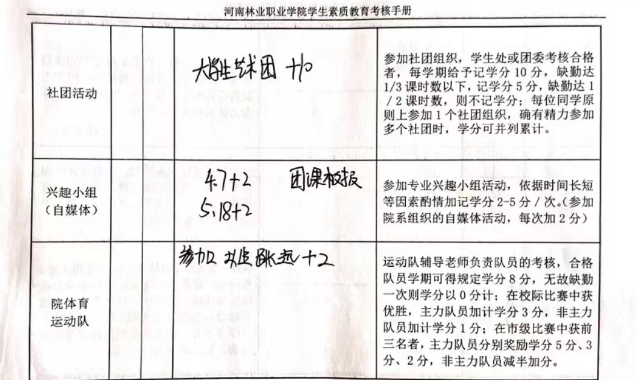 河南林业职业学院学生素质教育考核手册
社团活动
大学生艺术团 +10
参加社团组织，学生处或团委考核合格
者，每学期给予记学分 10 分，缺勤达
1/3 课时数以下，记学分 5 分，缺勤达 1
/ 2 课时数，则不记学分；每位同学原
则上参加 1 个社团组织，确有精力参加
多个社团时，学分可并列累计。
兴趣小组
（自媒体）
4.7+2 团课板报
5.18+2
参加专业兴趣小组活动，依据时间长短
等因素酌情加记学分 2-5 分 / 次。（参加
院系组织的自媒体活动，每次加 2 分）
院体育
运动队
参加 +2
运动队辅导老师负责队员的考核，合格
队员学期可得规定学分 8 分，无故缺勤
一次则学分以 0 分计；在校际比赛中获
优胜，主力队员加计学分 3 分，非主力
队员加计学分 1 分；在市级比赛中获前
三名者，主力队员分别奖励学分 5 分、3
分、2 分，非主力队员减半加分。